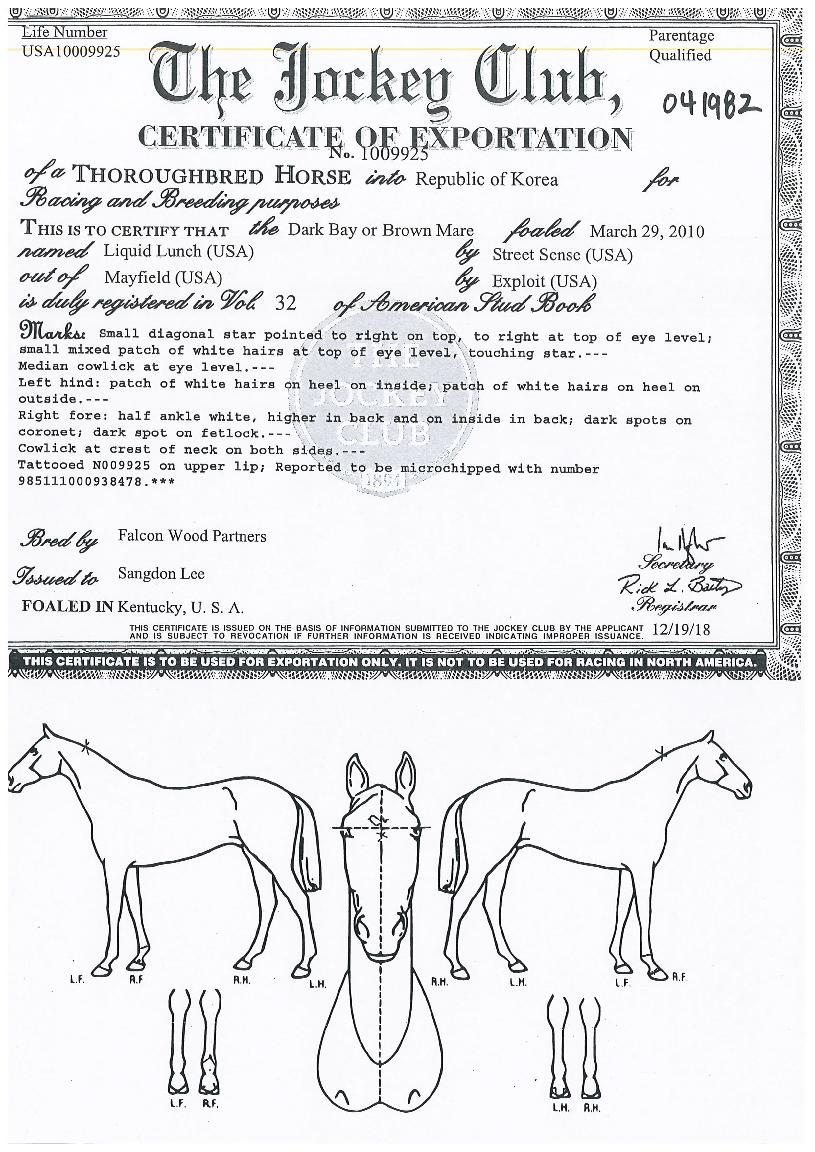 Life Number
USA10009925
Parentage
Qualified
The Jockey Club,
041982
CERTIFICATE OF EXPORTATION
No. 1009925
of a THOROUGHBRED HORSE into Republic of Korea for
Racing and Breeding purposes
THIS IS TO CERTIFY THAT the Dark Bay or Brown Mare foaled March 29, 2010
named Liquid Lunch (USA) by Street Sense (USA)
out of Mayfield (USA) by Exploit (USA)
is duly registered in Vol. 32 of American Stud Book
Marks: Small diagonal star pointed to right on top, to right at top of eye level;
small mixed patch of white hairs at top of eye level, touching star.---
Median cowlick at eye level.---
Left hind: patch of white hairs on heel on inside; patch of white hairs on heel on
outside.---
Right fore: half ankle white, higher in back and on inside in back; dark spots on
coronet; dark spot on fetlock.---
Cowlick at crest of neck on both sides.---
Tattooed N009925 on upper lip; Reported to be microchipped with number
985111000938478.***
THE
JOCKEY
CLUB
1894
Bred by Falcon Wood Partners
Secretary
Issued to Sangdon Lee
Rick L. Bailey
Registrar
FOALED IN Kentucky, U. S. A.
THIS CERTIFICATE IS ISSUED ON THE BASIS OF INFORMATION SUBMITTED TO THE JOCKEY CLUB BY THE APPLICANT
AND IS SUBJECT TO REVOCATION IF FURTHER INFORMATION IS RECEIVED INDICATING IMPROPER ISSUANCE. 12/19/18
THIS CERTIFICATE IS TO BE USED FOR EXPORTATION ONLY. IT IS NOT TO BE USED FOR RACING IN NORTH AMERICA.
L.F. R.F R.H. L.H. R.H. L.H. L.F. R.F
L.F. R.F. L.H. R.H.